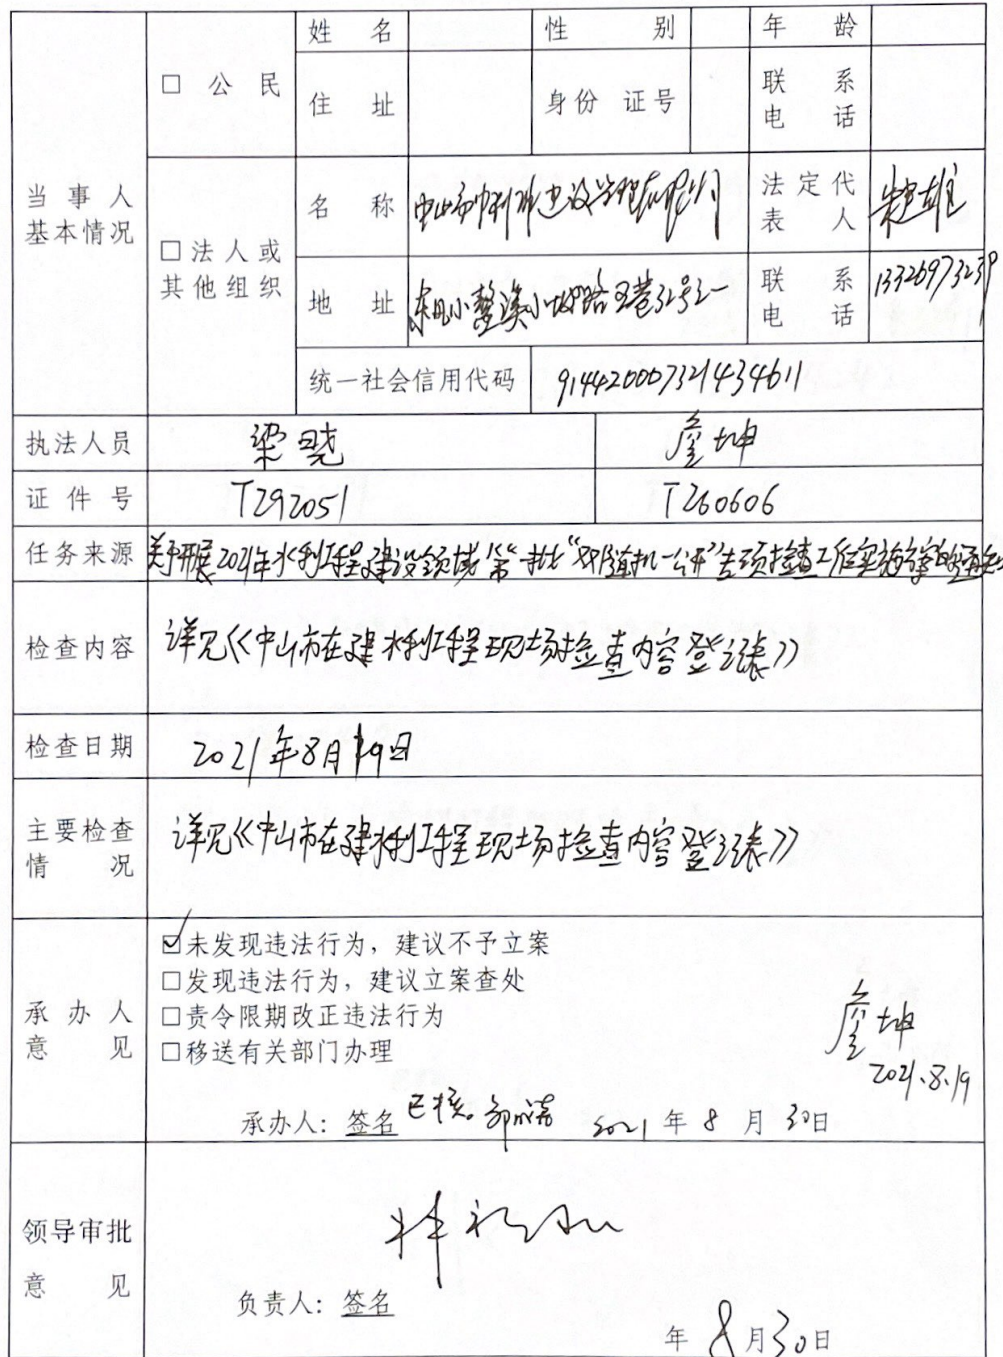 姓名 性别 年龄
□公民
住址 身份证号 联系电话
当事人基本情况
名称 中山市水利建设管理有限公司 法定代表人
□法人或其他组织
地址 东区小鳌溪 联系电话 13326973239
统一社会信用代码 914420007321434611
执法人员 梁晃 詹坤
证件号 T292051 T260606
任务来源 关于开展2021年水利工程建设领域第一批“双随机一公开”专项检查工作实施方案的通知
检查内容 详见《中山市在建水利工程现场检查内容登记表》
检查日期 2021年8月19日
主要检查情况 详见《中山市在建水利工程现场检查内容登记表》
☑未发现违法行为，建议不予立案
□发现违法行为，建议立案查处
承办人意见
□责令限期改正违法行为
□移送有关部门办理
詹坤
2021.8.19
承办人：签名 已核。 2021年8月30日
领导审批意见
负责人：签名
年8月30日